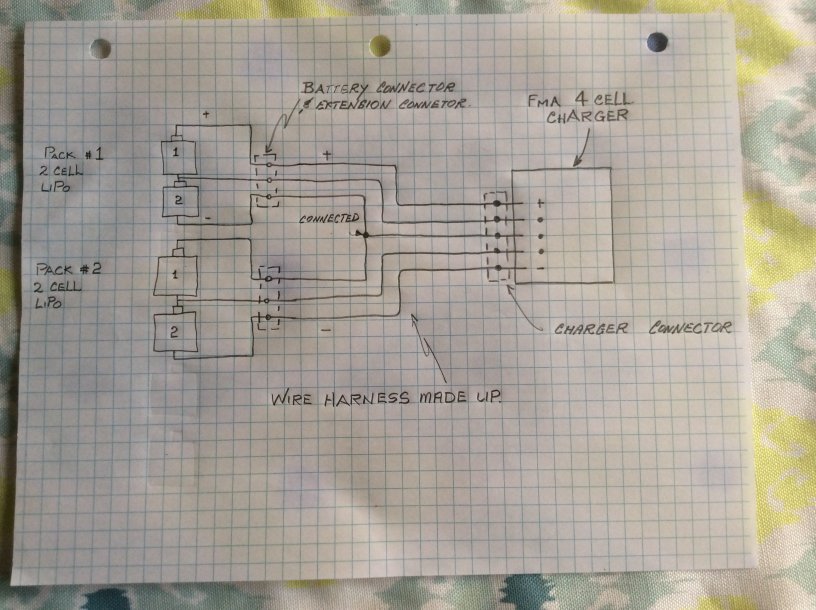 BATTERY CONNECTOR
& EXTENSION CONNETOR.
FMA 4 CELL
CHARGER
+
PACK #1
2 CELL
LIPO
1
2
-
+
+
CONNECTED
-
PACK #2
2 CELL
LIPO
1
2
-
CHARGER CONNECTOR
WIRE HARNESS MADE UP.